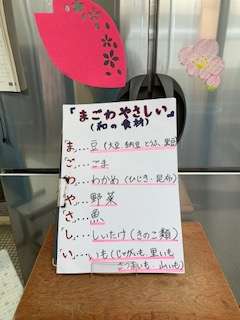 『まごわやさしい』
(和の食材)
ま…豆(大豆 納豆 とうふ 黒豆)
ご…ごま
わ…わかめ(ひじき・昆布)
や…野菜
さ…魚
し…しいたけ(きのこ類)
い…いも(じゃがいも 里いも
さつまいも 山いも)